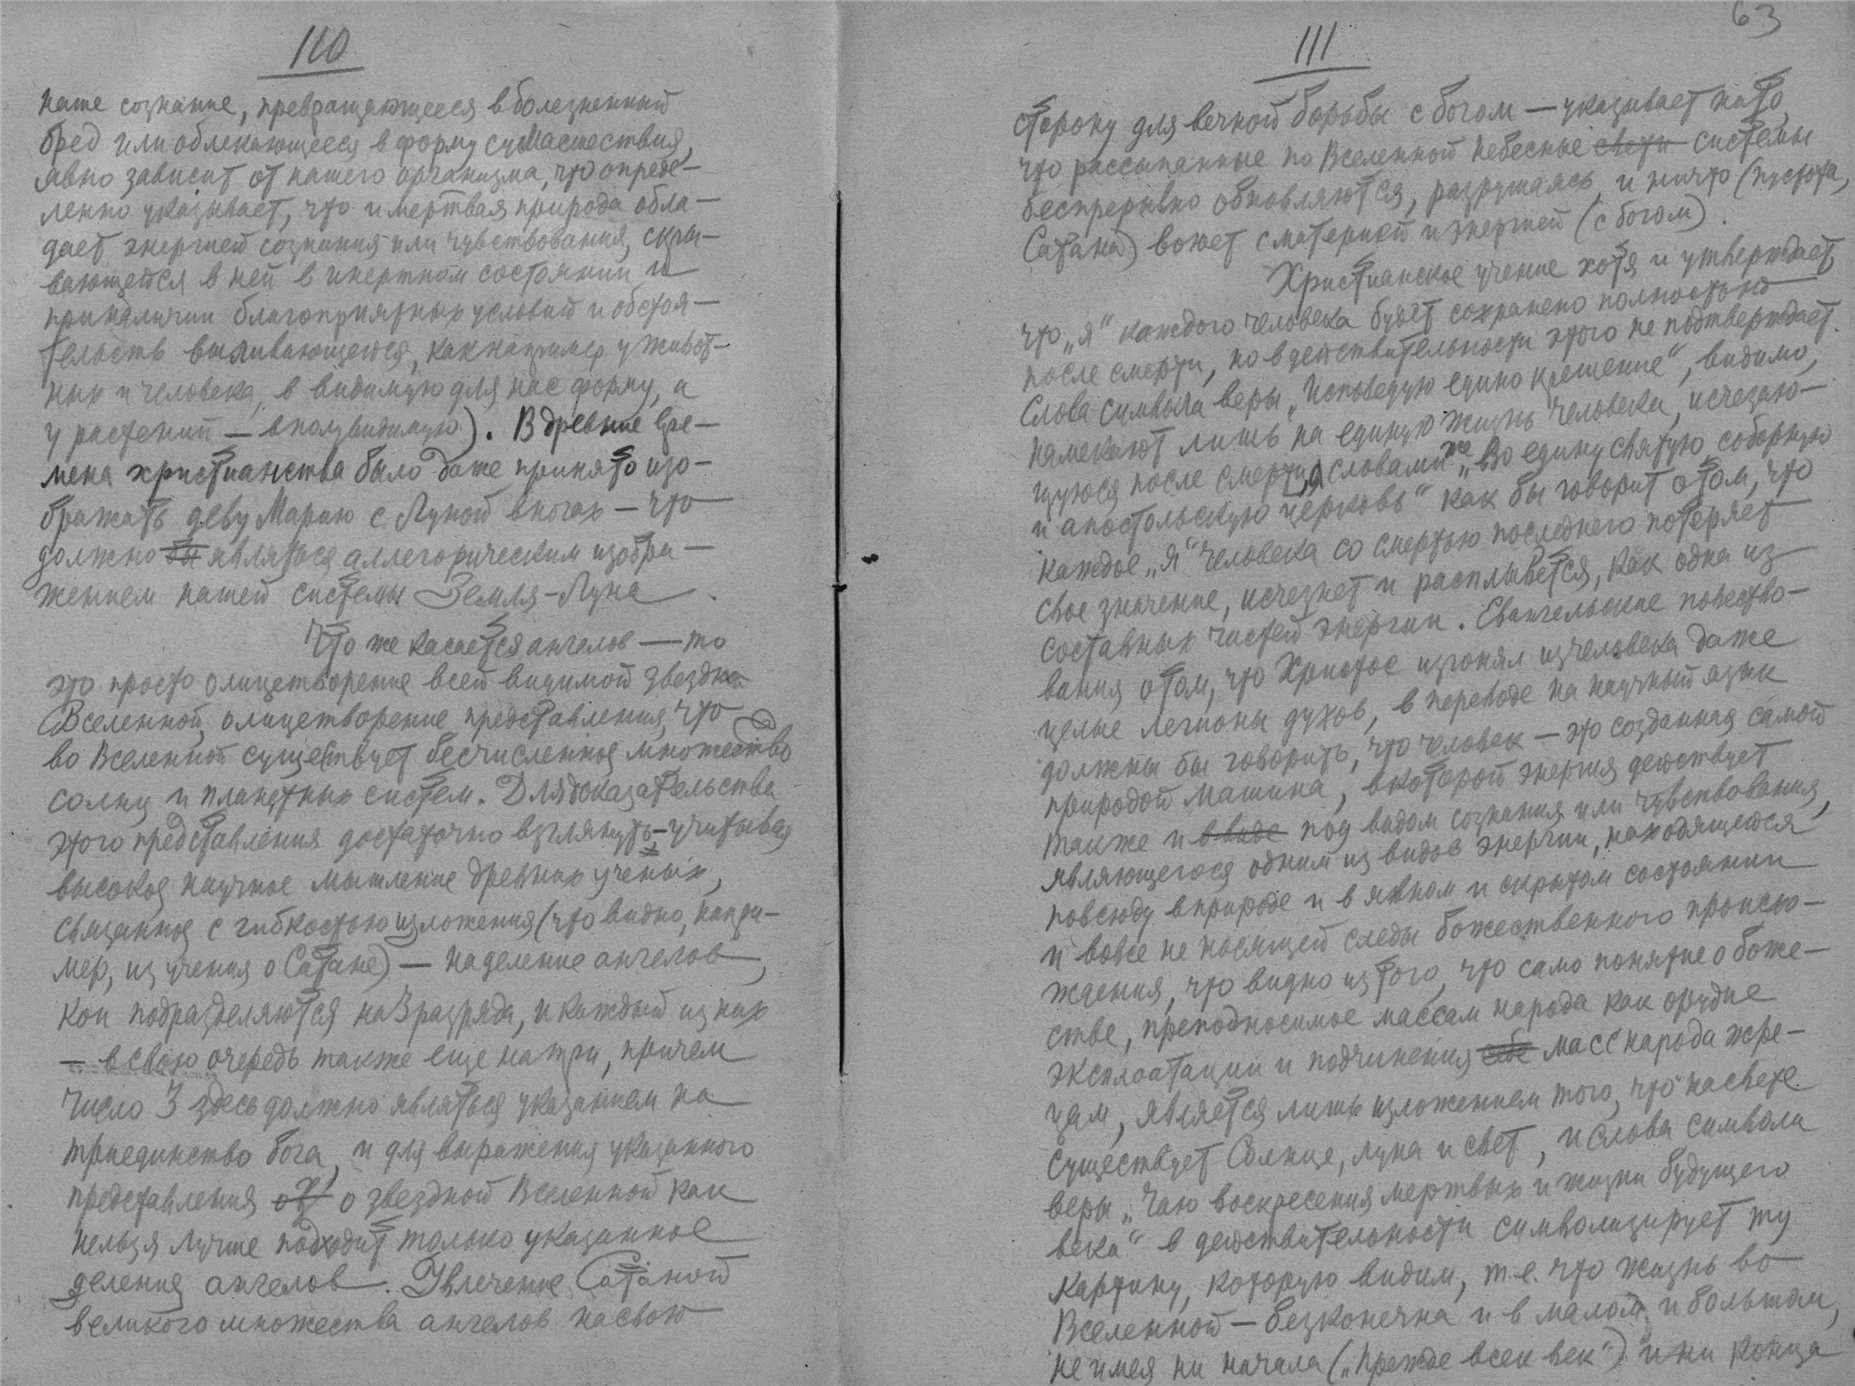 110
наше сознание, превращающееся в болезненный
бред или облекающееся в форму сумасшествия,
явно зависит от нашего организма, что опреде-
ленно указывает, что и мертвая природа обла-
дает энергией сознания или чувствования, скры-
вающейся в ней в инертном состоянии и
при наличии благоприятных условий и обстоя-
тельств выливающейся, как например у живот-
ных и человека, в видимую для нас форму, а
у растений — в полувидимую). В древние вре-
мена христианства было даже принято изо-
бражать деву Марию с Луной в ногах — что
должно являться аллегорическим изобра-
жением нашей системы Земля-Луна.
Что же касается ангелов — то
это просто олицетворение всей видимой звездной
Вселенной, олицетворение представления, что
во Вселенной существует бесчисленное множество
солнц и планетных систем. Для доказательства
этого представления достаточно взглянуть, — учитывая
высокое научное мышление древних ученых,
связанное с гибкостью изложения (что видно, напри-
мер, из учения о Сатане) — на деление ангелов,
кои подразделяются на 3 разряда, и каждый из них
— в свою очередь также еще на три, причем
число 3 здесь должно являться указанием на
триединство бога, и для выражения указанного
представления о звездной Вселенной как
нельзя лучше подходит только указанное
деление ангелов. Увлечение Сатаной
великого множества ангелов на свою
63
111
сторону для вечной борьбы с богом — указывает на то,
что рассыпанные по Вселенной небесные системы
беспрерывно обновляются, разрушаясь, и ничто (пустота,
Сатана) воюет с материей и энергией (с богом).
Христианское учение хотя и утверждает,
что „я“ каждого человека будет сохранено полностью
после смерти, но в действительности этого не подтверждает.
Слова символа веры „Исповедую едино крещение“, видимо,
намекают лишь на единую жизнь человека, исчезаю-
щуюся после смерти, а словами же „Во едину святую, соборную
и апостольскую церковь“ как бы говорит о том, что
каждое „я“ человека со смертью последнего потеряет
свое значение, исчезнет и расплывется, как одна из
составных частей энергии. Евангельские повество-
вания о том, что Христос изгонял из человека даже
целые легионы духов, в переводе на научный язык
должны бы говорить, что человек — это созданная самой
природой машина, в которой энергия действует
также и в виде под видом сознания или чувствования,
являющегося одним из видов энергии, находящейся
повсюду в природе и в явном и скрытом состоянии
и вовсе не носящей следы божественного происхо-
ждения, что видно из того, что само понятие о боже-
стве, преподносимое массам народа как орудие
эксплоатации и подчинения себе масс народа жре-
цам, является лишь изложением того, что на свете
существует Солнце, луна и свет, и слова символа
веры „Чаю воскресения мертвых и жизни будущего
века“ в действительности символизирует ту
картину, которую видим, т.е. что жизнь во
Вселенной — безконечна и в малом и большом,
не имея ни начала („прежде всех век“) и ни конца